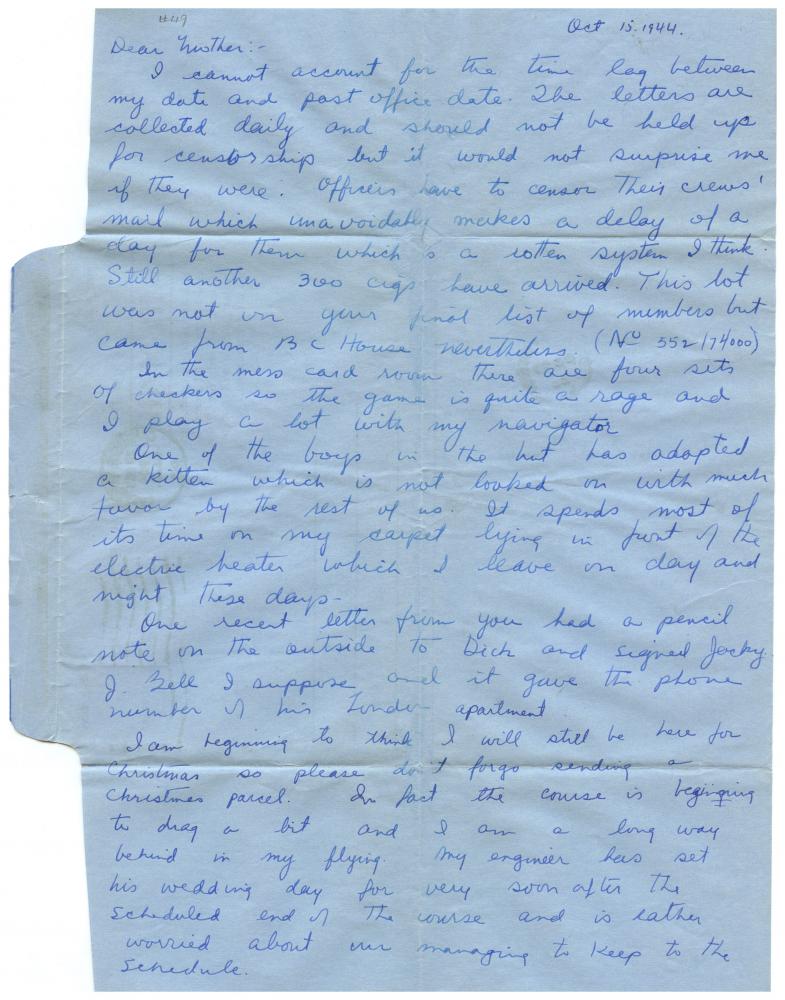 #49
Oct 15. 1944.
Dear Mother:-
I cannot account for the time lag between
my date and post office date. The letters are
collected daily and should not be held up
for censorship but it would not surprise me
if they were. Officers have to censor their crews'
mail which unavoidably makes a delay of a
day for them which is a rotten system I think.
Still another 300 cigs have arrived. This lot
was not on your final list of members but
came from B C House nevertheless. (No 552/74000)
In the mess card room there are four sets
of checkers so the game is quite a rage and
I play a lot with my navigator
One of the boys in the hut has adopted
a kitten which is not looked on with much
favor by the rest of us. It spends most of
its time on my carpet lying in front of the
electric heater which I leave on day and
night these days-
One recent letter from you had a pencil
note on the outside to Dick and signed Jocky.
J. Zell I suppose and it gave the phone
number of his London apartment.
I am beginning to think I will still be here for
Christmas so please don't forgo sending a
Christmas parcel. In fact the course is beginging
to drag a bit and I am a long way
behind in my flying. My engineer has set
his wedding day for very soon after the
scheduled end of the course and is rather
worried about our managing to keep to the
schedule.